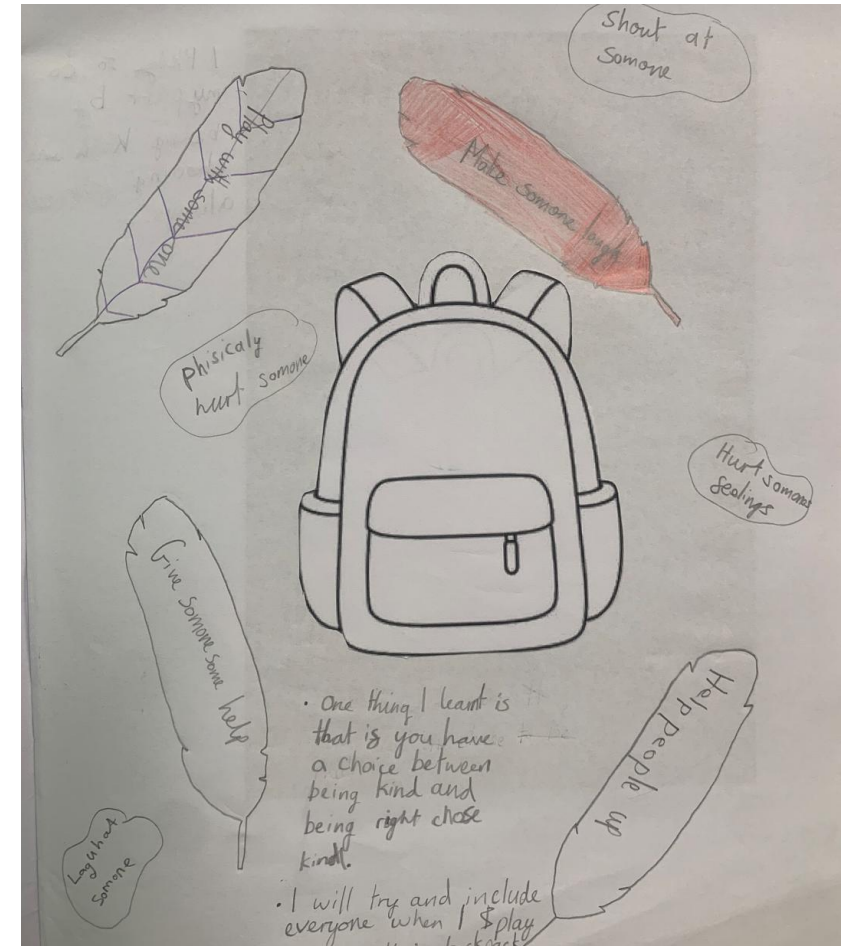 Shout at
Somone
Play with some one
Make somone laugh
phisicaly
hurt somone
Hurt somones
fealings
Give somone some help
Help people up
Laguhat
Somone
• One thing I learnt is
that is you have
a choice between
being kind and
being right chose
kind.
• I will try and include
everyone when I play